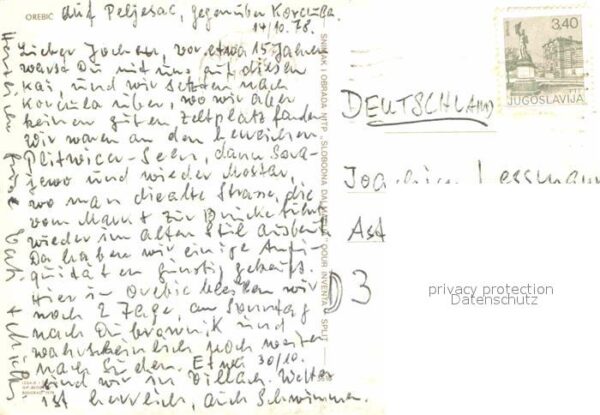 OREBIĆ
auf Pelješac, gegenüber Korčula.
14/10.78.
Lieber Jochen, vor etwa 15 Jahren
warst Du mit uns auf diesem
Kai, und wir setzten nach
Korčula über, wo wir aber
keinen guten Zeltplatz fanden
Wir waren an den herrlichen
Plitwicer-Seen, dann Sara-
jewo und wieder Mostar,
wo man die alte Strasse, die
vom Markt zur Brücke führt
wieder im alten Stil ausbaut.
Da haben wir einige Anti-
quitäten günstig gekauft.
Hier in Orebic bleiben wir
noch 2 Tage, am Sonntag
nach Dubrovnik und
wahrscheinlich noch weiter
nach Süden. Etwa 30/10.
sind wir in Villach. Wetter
ist herrlich, auch Schwimmen.
Herzliche Grüße
SNIMAK I OBRADA NTP - SLOBODNA DALMACIJA
SPLIT
3,40
JUGOSLAVIJA
DEUTSCHLAND
Joachim Lessmann
Ast
D3
privacy protection
Datenschutz